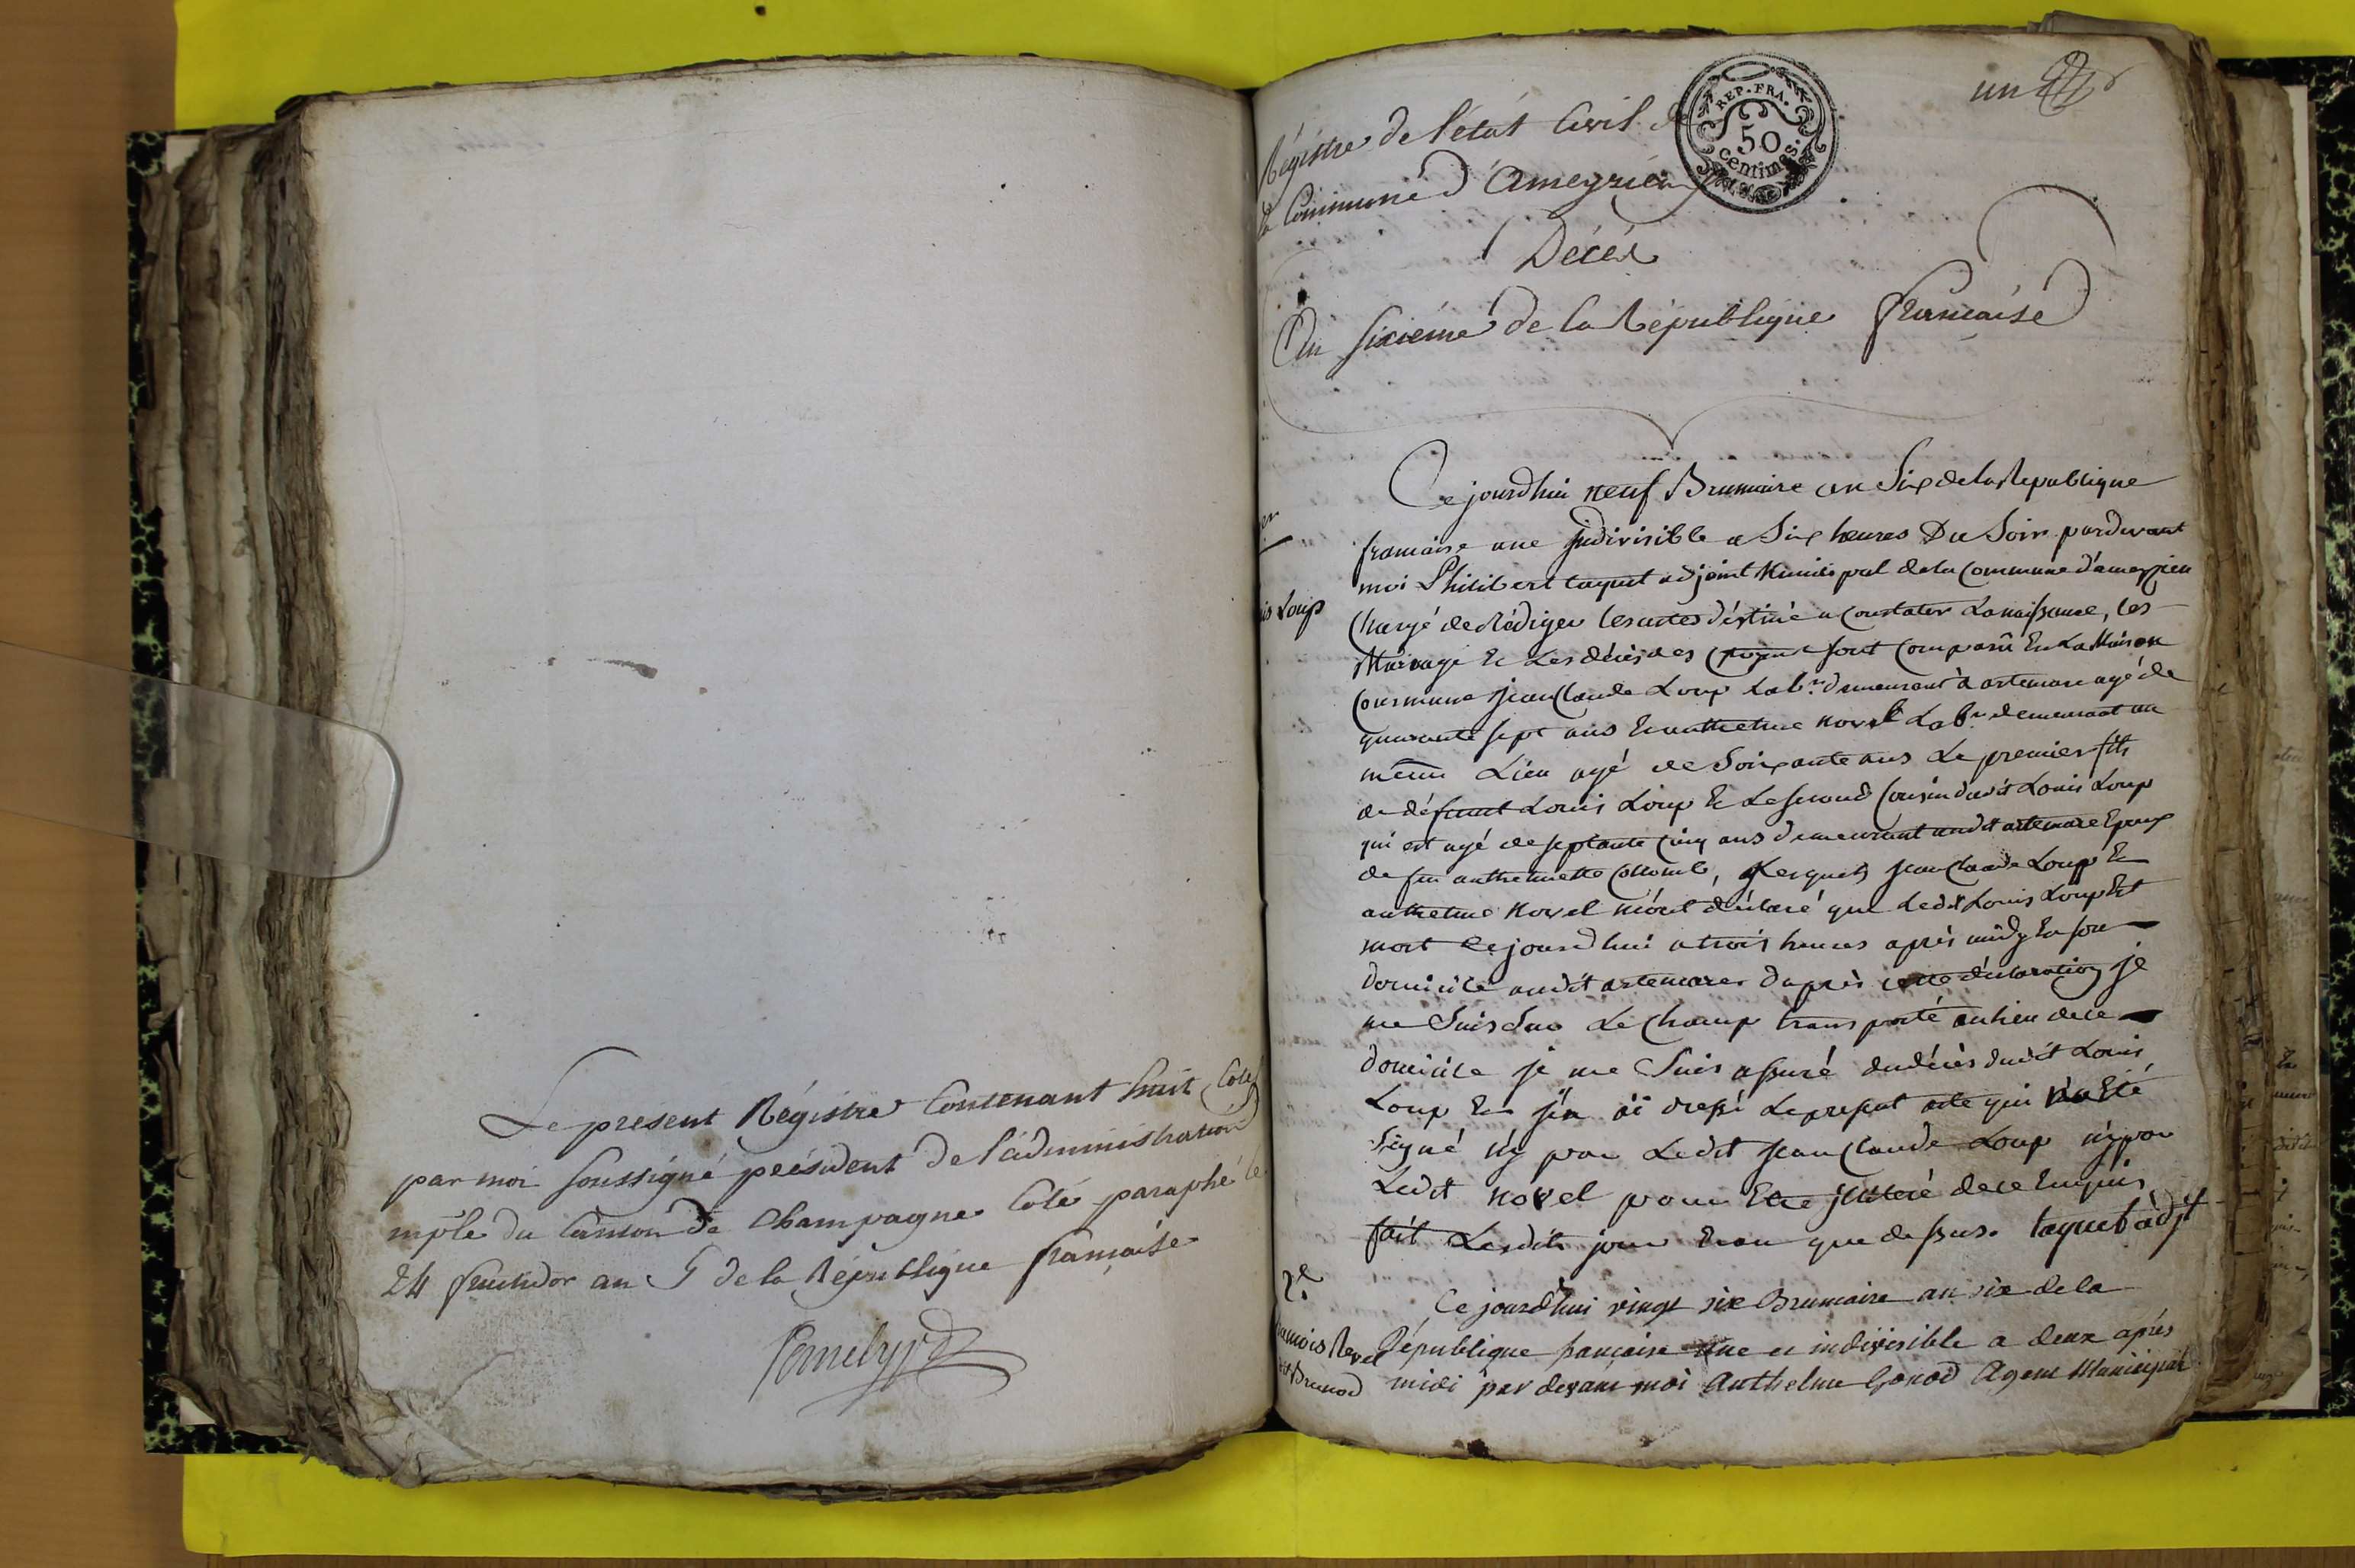 Le present Régistre Contenant huit Cotes
par moi soussigné président de l'administration
mple du Canton de Champagne Coté paraphé le
24 fructidor an 5 de la République francaise
un
REP. FRA.
50
centimes.
Régistre de l'état Civil de
la Commune d'Ameyzieu
Décés
An sixiéme de la République francaise
Ce jourdhui neuf Brumaire an Six de la Republique
francaise une indivisible a Six heures Du Soir pardevant
moi Philibert taquet adjoint Municipal de la Commune d'ameyzieu
Chargé de Rédiger les actes déstiné a Constater La naissance, les
Mariage Et Les décès des sont Comparû En La Maison
Commune jean Claude Loup Lab.r demeurant à artemare agé de
quarante sept ans Et anthelme Novel Lab.r demeurant au
même Lieu agé de Soixante ans Le premier fils
de défunt Louis Loup Et Le second Cousin dudit Louis Loup
qui est agé de septante Cinq ans demeurant audit artemare Epoux
de feu anthelmette, Lesquels jean Claude Loup Et
anthelme Novel m'ont déclaré que Ledit Louis Loup Est
mort Ce jourdhui a trois heures après midy En son
domicile audit artemare d'après cette déclaration je
me Suis Sur Le Champ transporté au lieu de ce
domicile je me Suis assuré du décès dudit Louis
Loup Et j'en ai dressé Le present acte qui n'a Eté
Signé n'y par Ledit jean Claude Loup n'y par
Ledit Novel pour Etre de ce Enquis
fait Lesdits jour Et an que dessus. taquet adjt
er
is Loup
2.e
Ce jourd'hui vingt six Brumaire an six de la
République francaise une et indivisible a deux aprés
midi par devant moi Anthelme Gonod Agent Municipal
francois Revel
dit Brunod